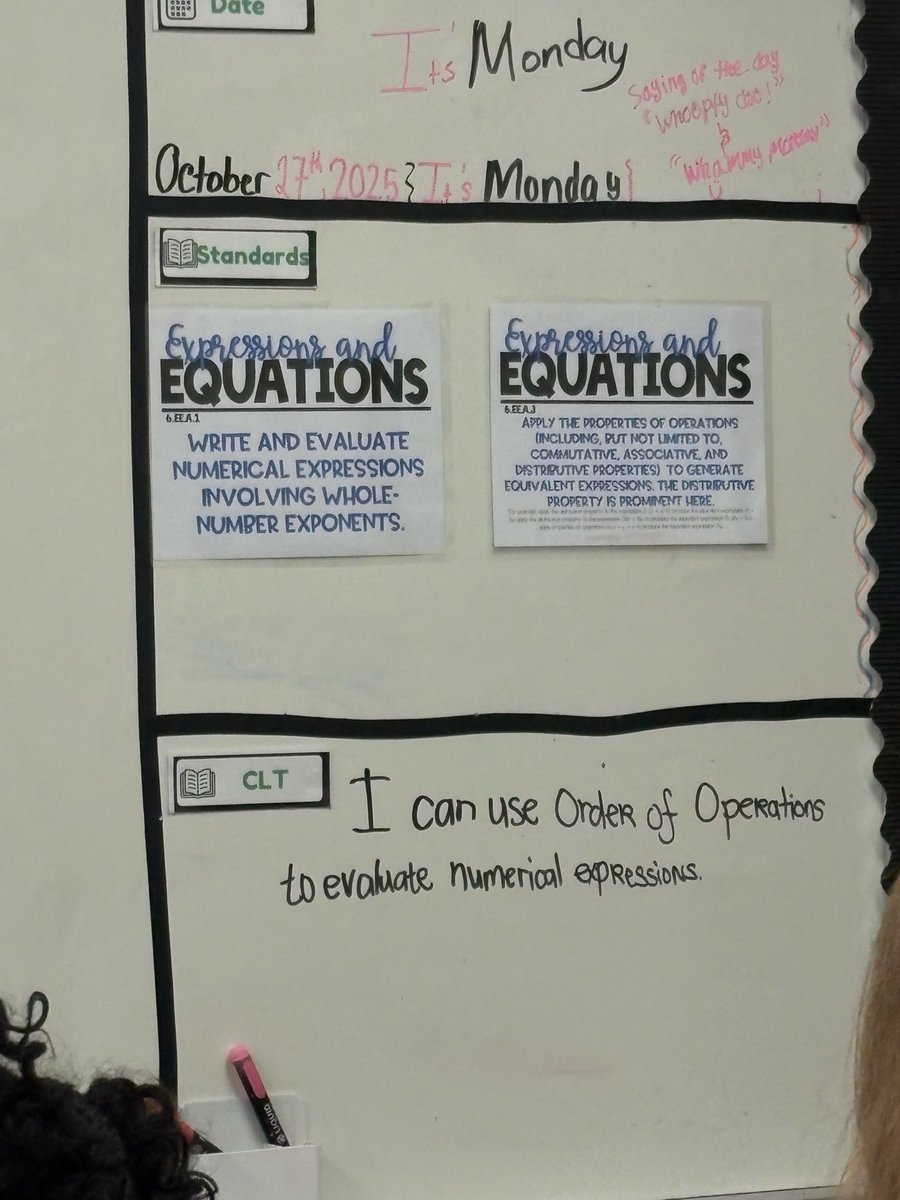 Date
It's Monday
Saying of the day
"Whooppy doo!"
&
"Whammy Monday"
October 27th, 2025 } It's Monday {
Standards
Expressions and
EQUATIONS
6.EE.A.1
WRITE AND EVALUATE
NUMERICAL EXPRESSIONS
INVOLVING WHOLE-
NUMBER EXPONENTS.
Expressions and
EQUATIONS
6.EE.A.3
APPLY THE PROPERTIES OF OPERATIONS
(INCLUDING, BUT NOT LIMITED TO,
COMMUTATIVE, ASSOCIATIVE, AND
DISTRIBUTIVE PROPERTIES) TO GENERATE
EQUIVALENT EXPRESSIONS. THE DISTRIBUTIVE
PROPERTY IS PROMINENT HERE.
CLT
I can use Order of Operations
to evaluate numerical expressions.